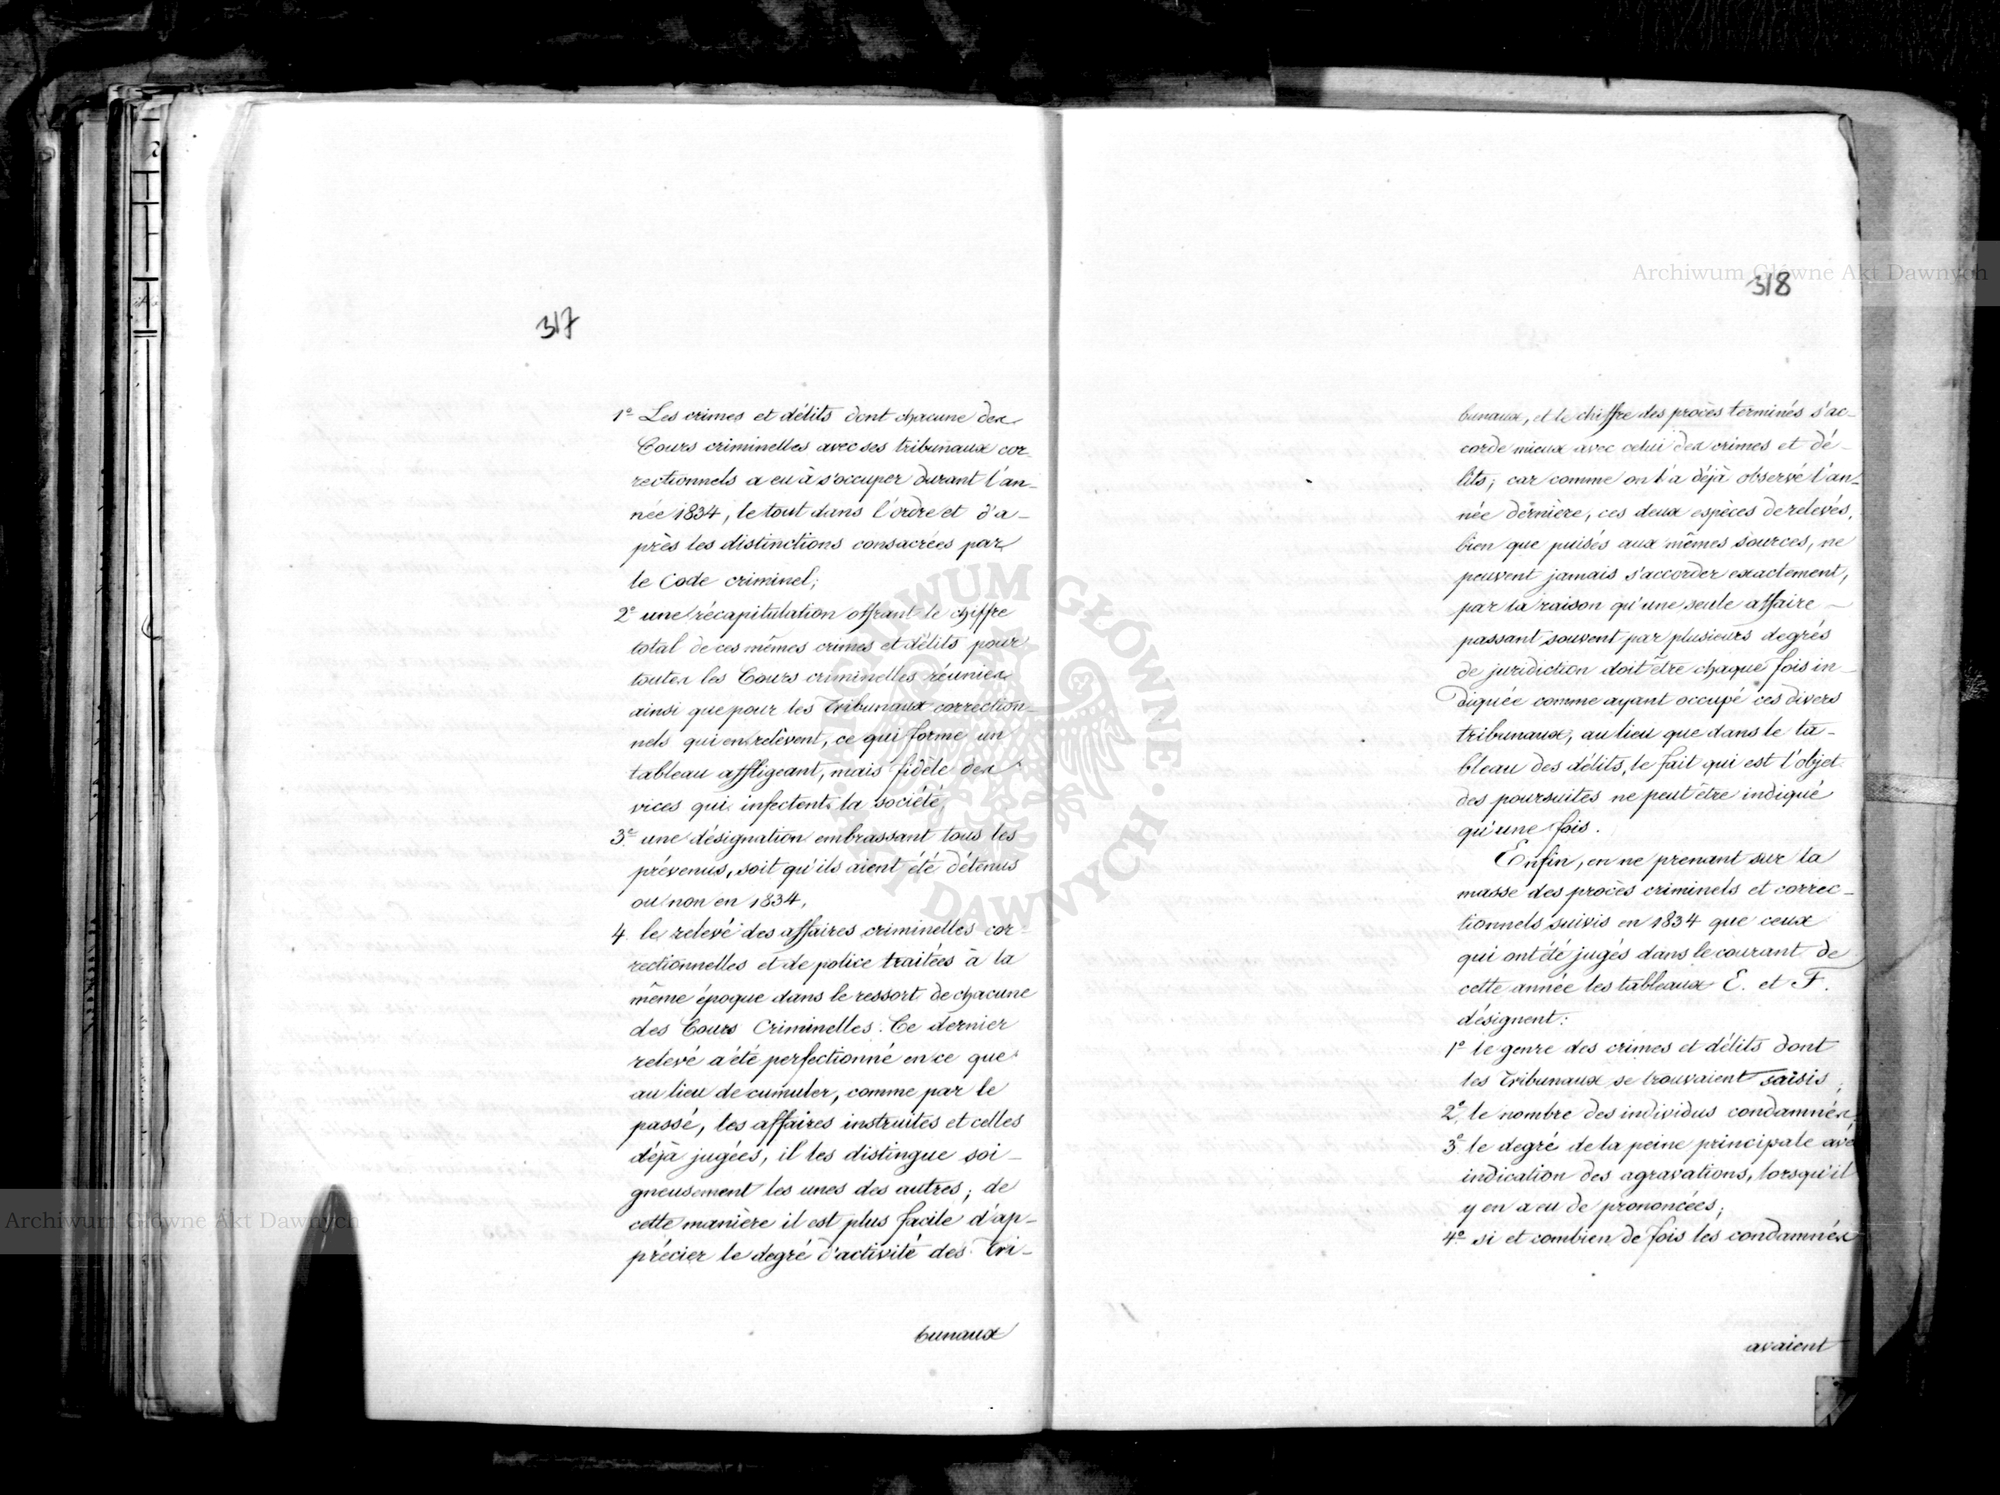 317
1º Les crimes et délits dont chacune des
Cours criminelles avec ses tribunaux cor-
rectionnels a eu à s'occuper durant l'an-
née 1834, le tout dans l'ordre et d'a-
près les distinctions consacrées par
le Code criminel;
2º une récapitulation offrant le chiffre
total de ces mêmes crimes et délits pour
toutes les Cours criminelles réunies
ainsi que pour les Tribunaux correction-
nels qui en relèvent, ce qui forme un
tableau affligeant, mais fidèle des
vices qui infectent la société,
3º une désignation embrassant tous les
prévenus, soit qu'ils aient été détenus
ou non en 1834,
4. le relevé des affaires criminelles cor-
rectionnelles et de police traitées à la
même époque dans le ressort de chacune
des Cours Criminelles. Ce dernier
relevé a été perfectionné en ce que
au lieu de cumuler, comme par le
passé, les affaires instruites et celles
déjà jugées, il les distingue soi-
gneusement les unes des autres; de
cette manière il est plus facile d'ap-
précier le degré d'activité des Tri-
bunaux
318
bunaux, et le chiffre des procès terminés s'ac-
corde mieux avec celui des crimes et dé-
lits; car comme on l'a déjà observé l'an-
née dernière, ces deux espèces de relevés,
bien que puisés aux mêmes sources, ne
peuvent jamais s'accorder exactement,
par la raison qu'une seule affaire -
passant souvent par plusieurs degrés
de juridiction doit être chaque fois in-
diquée comme ayant occupé ces divers
tribunaux, au lieu que dans le ta-
bleau des délits, le fait qui est l'objet
des poursuites ne peut être indiqué
qu'une fois.
Enfin, en ne prenant sur la
masse des procès criminels et correc-
tionnels suivis en 1834 que ceux
qui ont été jugés dans le courant de
cette année les tableaux E. et F.
désignent:
1º le genre des crimes et délits dont
les Tribunaux se trouvaient saisis;
2º le nombre des individus condamnés
3º le degré de la peine principale avec
indication des agravations, lorsqu'il
y en a eu de prononcées;
4º si et combien de fois les condamnés
avaient
Archiwum Główne Akt Dawnych
Archiwum Główne Akt Dawnych
ARCHIWUM GŁÓWNE AKT DAWNYCH